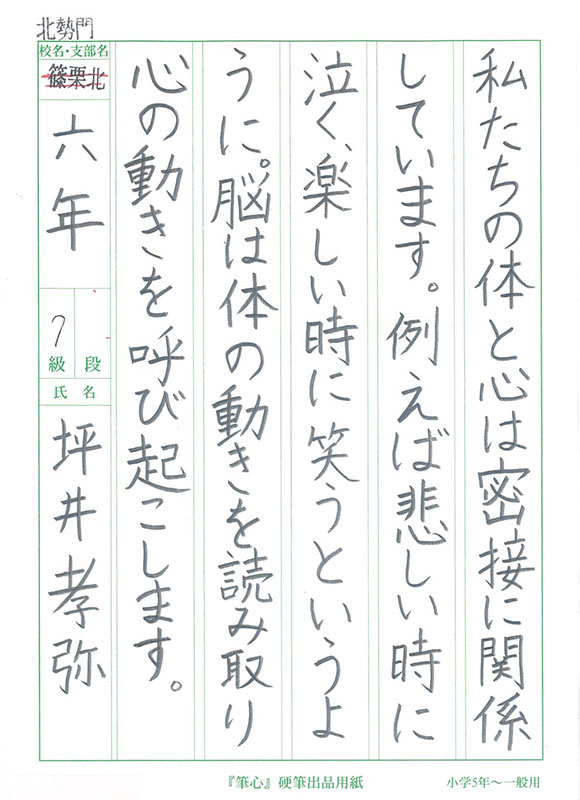 私たちの体と心は密接に関係
しています。例えば悲しい時に
泣く、楽しい時に笑うというよ
うに。脳は体の動きを読み取り
心の動きを呼び起こします。
北勢門
校名・支部名
篠栗北
六年
7
級 段
氏 名
坪井孝弥
『筆心』硬筆出品用紙
小学5年〜一般用